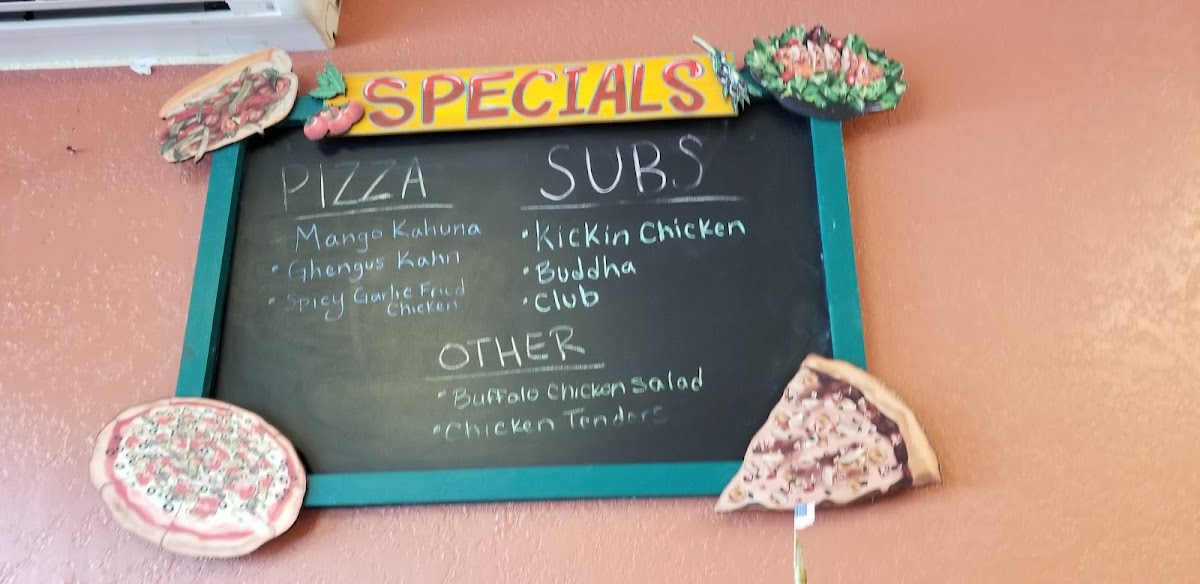 SPECIALS
PIZZA
Mango Kahuna
• Ghengus Kahn
• Spicy Garlic Fried
Chicken
SUBS
• Kickin Chicken
• Buddha
• Club
OTHER
• Buffalo Chicken Salad
• Chicken Tenders